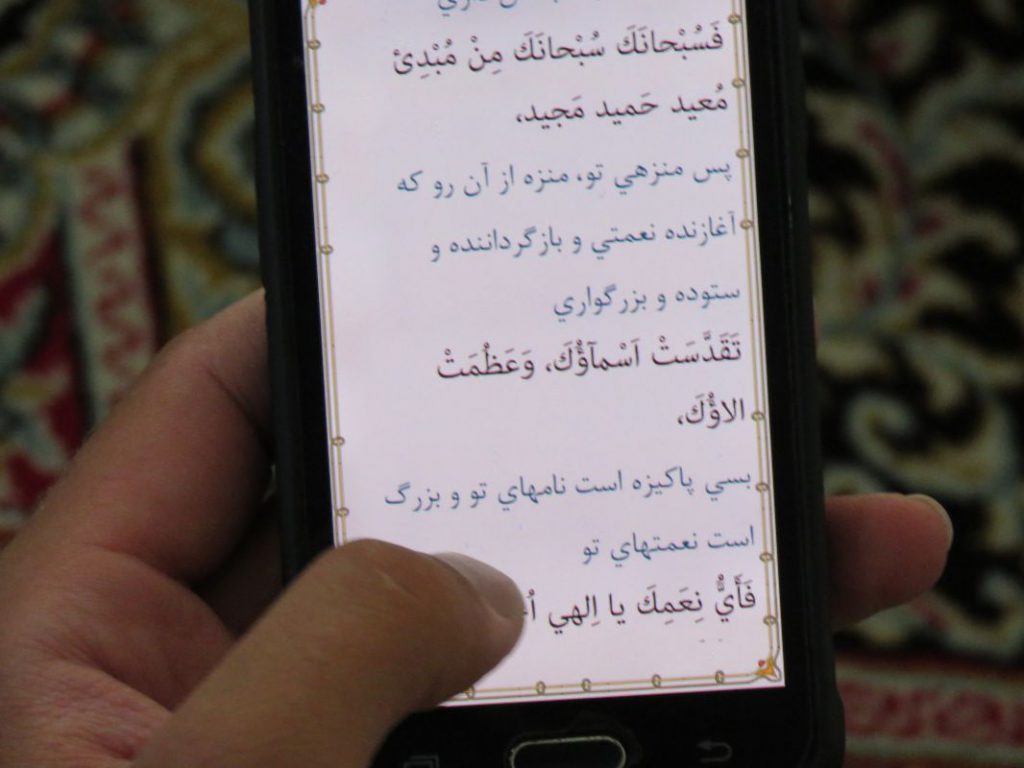 فَسُبْحانَكَ سُبْحانَكَ مِنْ مُبْدِئ
مُعيد حَميد مَجيد،
پس منزهي تو، منزه از آن رو كه
آغازنده نعمتي و بازگرداننده و
ستوده و بزرگواري
تَقَدَّسَتْ اَسْمآؤُكَ، وَعَظُمَتْ
الاؤُكَ،
بسي پاكيزه است نامهاي تو و بزرگ
است نعمتهاي تو
فَأَيُّ نِعَمِكَ يا اِلهي